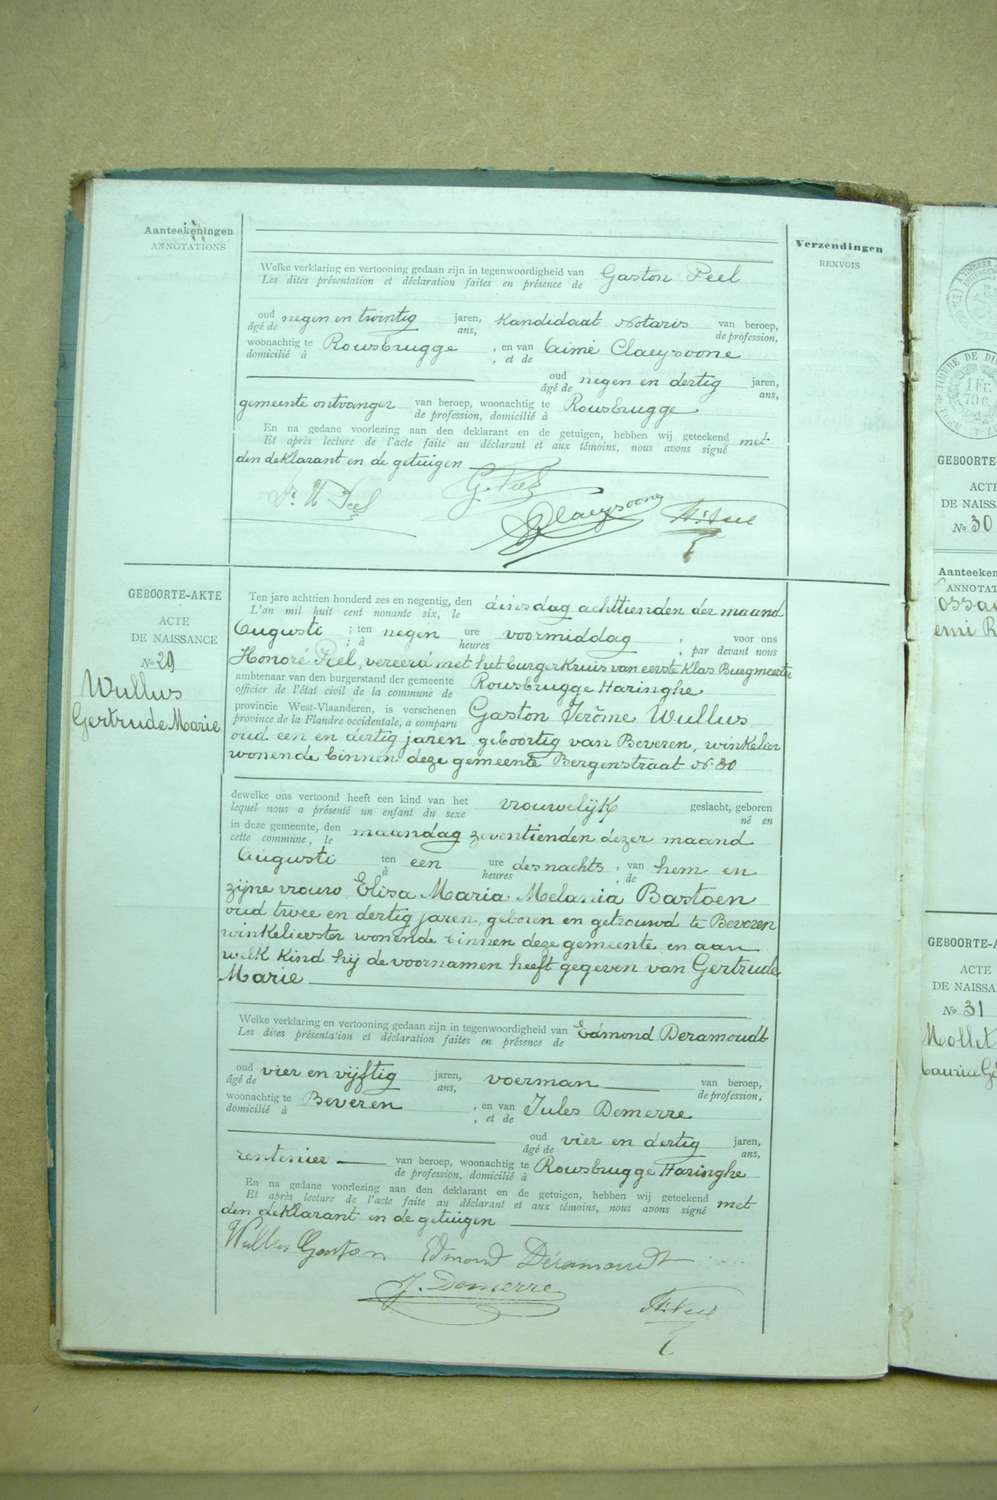 Aanteekeningen
ANNOTATIONS
Verzendingen
RENVOIS
Welke verklaring en vertooning gedaan zijn in tegenwoordigheid van Gaston Peel
Les dites présentation et déclaration faites en présence de
oud negen en twintig jaren, Kandidaat Notaris van beroep,
âgé de ans, de profession,
woonachtig te Rousbrugge , en van Aimé Claeysoone
domicilié à , et de
oud negen en dertig jaren,
âgé de ans,
gemeente ontvanger van beroep, woonachtig te Rousbrugge
de profession, domicilié à
En na gedane voorlezing aan den deklarant en de getuigen, hebben wij geteekend met
Et après lecture de l'acte faite au déclarant et aux témoins, nous avons signé
den deklarant en de getuigen
Peel G. Peel
Claeysoone
GEBOORTE-AKTE
ACTE
DE NAISSANCE
No 29
Wullus
Gertrude Marie
Ten jare achttien honderd zes en negentig, den dinsdag achttienden der maand
L'an mil huit cent nonante six, le
Augusti ; ten negen ure voormiddag ; voor ons
; à heures , par devant nous
Honoré Peel, vereerd met het burgerkruis van eerste Klas Burgmeester
ambtenaar van den burgerstand der gemeente Rousbrugge Haringhe
officier de l'état civil de la commune de
provincie West-Vlaanderen, is verschenen Gaston Jerôme Wullus
province de la Flandre occidentale, a comparu
oud een en dertig jaren, geboortig van Beveren, winkelier
wonende binnen deze gemeente Bergenstraat No 30
dewelke ons vertoond heeft een kind van het vrouwelijk geslacht, geboren
lequel nous a présenté un enfant du sexe né en
in deze gemeente, den maandag zeventienden dezer maand
cette commune, le
Augusti ten een ure des nachts , van hem en
à heures , de
zijne vrouw Elisa Maria Melania Bastoen
oud twee en dertig jaren, geboren en getrouwd te Beveren
winkelierster wonende binnen deze gemeente en aan
welk kind hij de voornamen heeft gegeven van Gertrude
Marie
Welke verklaring en vertooning gedaan zijn in tegenwoordigheid van Edmond Deramoudt
Les dites présentation et déclaration faites en présence de
oud vier en vijftig jaren, voerman van beroep,
âgé de ans, de profession,
woonachtig te Beveren , en van Jules Demerre
domicilié à , et de
oud vier en dertig jaren,
âgé de ans,
rentenier van beroep, woonachtig te Rousbrugge Haringhe
de profession, domicilié à
En na gedane voorlezing aan den deklarant en de getuigen, hebben wij geteekend met
Et après lecture de l'acte faite au déclarant et aux témoins, nous avons signé
den deklarant en de getuigen
Wullus Gaston Edmond Déramoudt
J. Demerre
GEBOORTE-
ACTE
DE NAISSA
No 30
Aanteeken
ANNOTAT
GEBOORTE-A
ACTE
DE NAISSA
No 31
Mollet